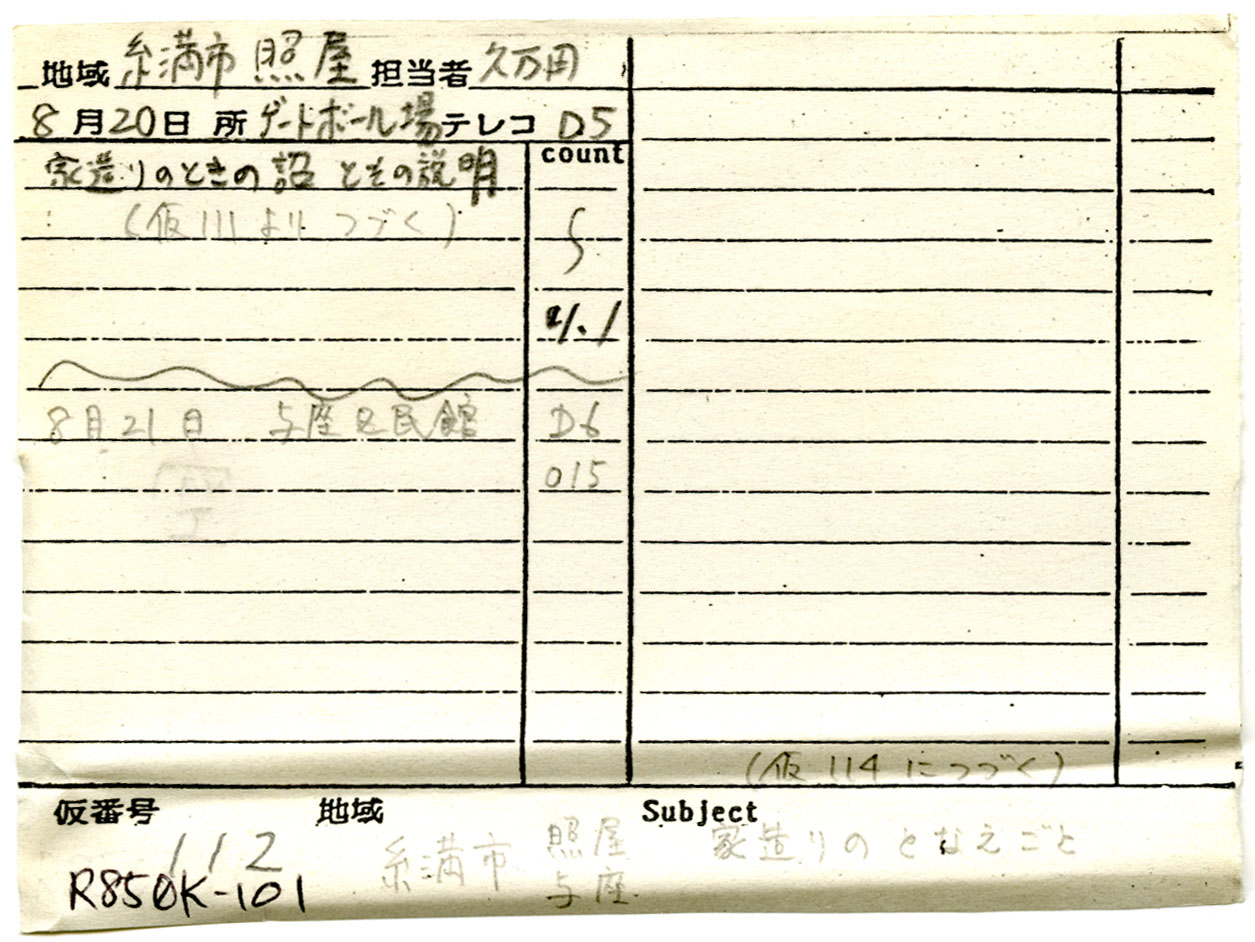 地域 糸満市 照屋 担当者 久万田
8月20日 所 ゲートボール場 テレコ D5
count
家造りのときの詔とその説明
(仮111よりつづく)
8月21日 与座区民館 D6
015
(仮114につづく)
仮番号 地域 Subject
112 糸満市 照屋 家造りのとなえごと
R850K-101 与座